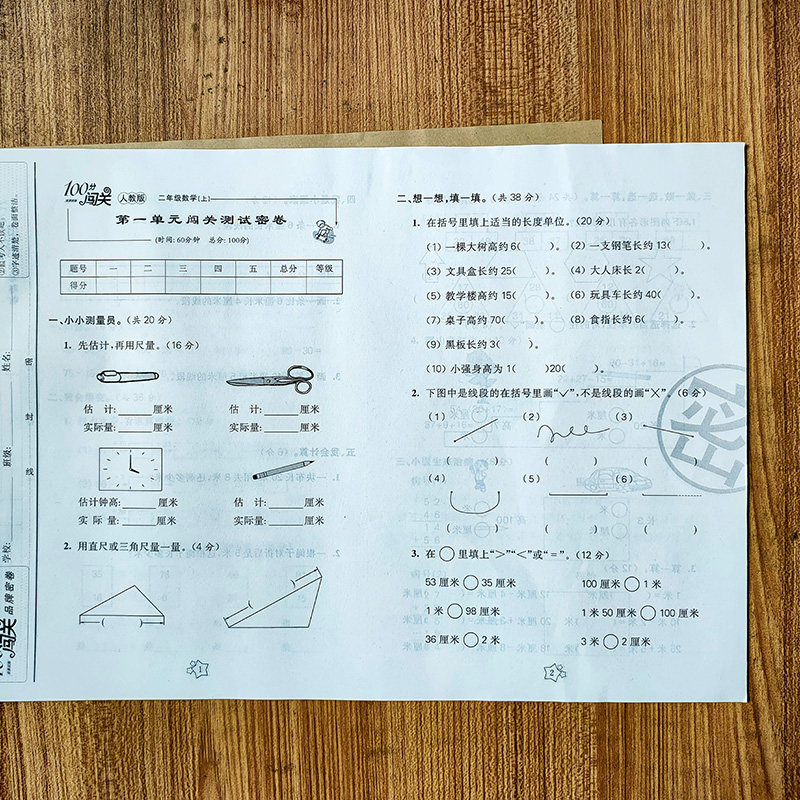 100分闯关
人教版
二年级数学(上)
第一单元闯关测试密卷
(时间:60分钟 总分:100分)
题号 一 二 三 四 五 总分 等级
得分
一、小小测量员。(共20分)
1. 先估计,再用尺量。(16分)
估 计:______厘米 估 计:______厘米
实际量:______厘米 实际量:______厘米
估计钟高:______厘米 估 计:______厘米
实 际 量:______厘米 实际量:______厘米
2. 用直尺或三角尺量一量。(4分)
1
二、想一想,填一填。(共38分)
1. 在括号里填上适当的长度单位。(20分)
(1) 一棵大树高约6( )。 (2) 一支钢笔长约13( )。
(3) 文具盒长约25( )。 (4) 大人床长2( )。
(5) 教学楼高约15( )。 (6) 玩具车长约40( )。
(7) 桌子高约70( )。 (8) 食指长约6( )。
(9) 黑板长约3( )。
(10) 小强身高为1( )20( )。
2. 下图中是线段的在括号里画“✓”,不是线段的画“×”。(6分)
(1) (2) (3)
( ) ( ) ( )
(4) (5) (6)
( ) ( ) ( )
3. 在○里填上“>”“<”或“=”。(12分)
53厘米○35厘米 100厘米○1米
1米○98厘米 1米50厘米○100厘米
36厘米○2米 3米○2厘米
2
密
学校:
班级:
姓名:
密 封 线
闯关
品牌密卷